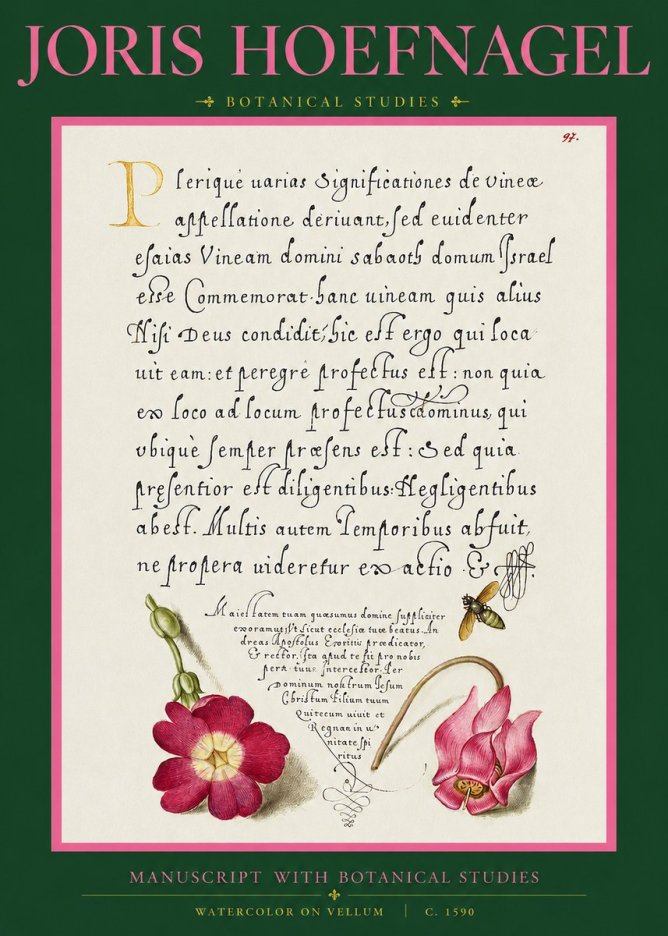 JORIS HOEFNAGEL
BOTANICAL STUDIES
97.
Plerique uarias Significationes de vineæ
appellatione deriuant, sed euidenter
esaias Vineam domini sabaoth domum Israel
esse Commemorat. hanc uineam quis alius
Nisi Deus condidit; hic est ergo qui loca
uit eam: et peregrè profectus est: non quia
ex loco ad locum profectus dominus, qui
vbiquè semper præsens est: Sed quia
presentior est diligentibus: Negligentibus
abest. Multis autem Temporibus abfuit,
ne propera uideretur exactio. &
Maiestatem tuam quæsumus domine suppliciter
exoramus: Vt sicut ecclesiæ tuæ beatus An
dreas Apostolus Exstitit prædicator,
& rector, Ita apud te sit pro nobis
perp. tuus Intercessor. Per
Dominum nostrum Iesum
Christum Filium tuum
Qui tecum uiuit et
Regnat in u
nitate spi
ritus
MANUSCRIPT WITH BOTANICAL STUDIES
WATERCOLOR ON VELLUM | C. 1590